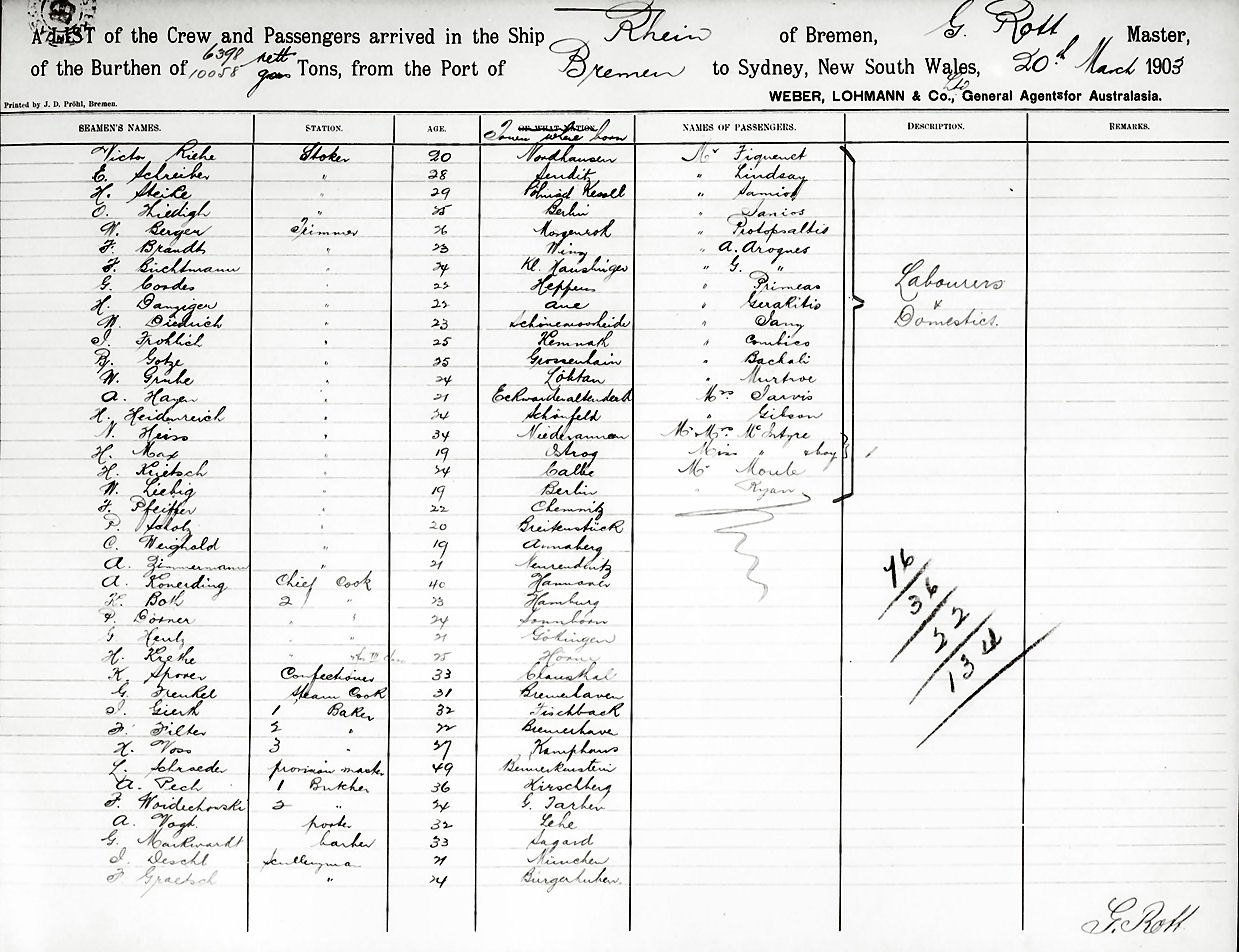 A LIST of the Crew and Passengers arrived in the Ship Rhein of Bremen, G. Rott Master,
of the Burthen of 6398 nett 10058 gros Tons, from the Port of Bremen to Sydney, New South Wales, 20th March 1903
Printed by J. D. Pröhl, Bremen.
WEBER, LOHMANN & Co., Ltd General Agents for Australasia.
SEAMEN'S NAMES. STATION. AGE. OF WHAT NATION. Town where born NAMES OF PASSENGERS. DESCRIPTION. REMARKS.
Victor Riehe Stoker 20 Nordhausen Mr Fiquenet
E. Schreiber " 28 " Lindsay
H. Steike " 29 "
O. " 25 Berlin " Janios
W. Berger Trimmer 26 Morgenroth " Protopsaltis
F. Brandt " 23 " A. Arognes
F. Buchtmann " 24 Kl. " G. "
G. Cordes " 22 Heppens " Primeas
H. Danziger " 22 Aue " Gerakitis
Labourers & Domestics.
W. Diedrich " 23 Schönemoorheide " Jany
J. Frohlich " 25 Kemnath " Combico
R. Götze " 25 Grossenhain " Bachali
W. Grube " 24 Löbtau " Murtroe
A. Hagen " 21 Eckwarderaltendeich Mrs Jarvis
H. Heidenreich " 24 Schönfeld " Gibson
N. Heiss " 34 Mr Mrs McIntyre
H. Max " 19 Ostrog Miss " & boy
H. Krietsch " 24 Calbe Mr Moule
W. Liebig " 19 Berlin " Ryan
F. Pfeiffer " 22 Chemnitz
P. Scholz " 20 Breitenstück
C. Weighold " 19 Annaberg
A. Zimmermann " 21 Neureudnitz
A. Konerding Chief Cook 40 Hannover
K. Both 2 " 23 Hamburg
P. Corner " " 24 Sonnborn
G Hentz " 21 Götingen
H. Kriethe " 25
K. Sporer Confectioner 33 Clausthal
G. Frenkel Steam Cook 31 Bremerhaven
J. Gierth 1 Baker 32 Fischback
F. Filter 2 " 22 Bremerhave
H. Voss 3 " 27 Kamphaus
L. Schroeder provision master 49 Benneckenstein
A. Pech 1 Butcher 36 Hirschberg
F. Woidechowski 2 " 24 G. Tarhen
A. Vogt porter 32 Lehe
G. Markwardt barber 33 Sagard
J. Deschl Sculleryman 21 München
F. Graetsch " 24
46
36
52
134
G. Rott